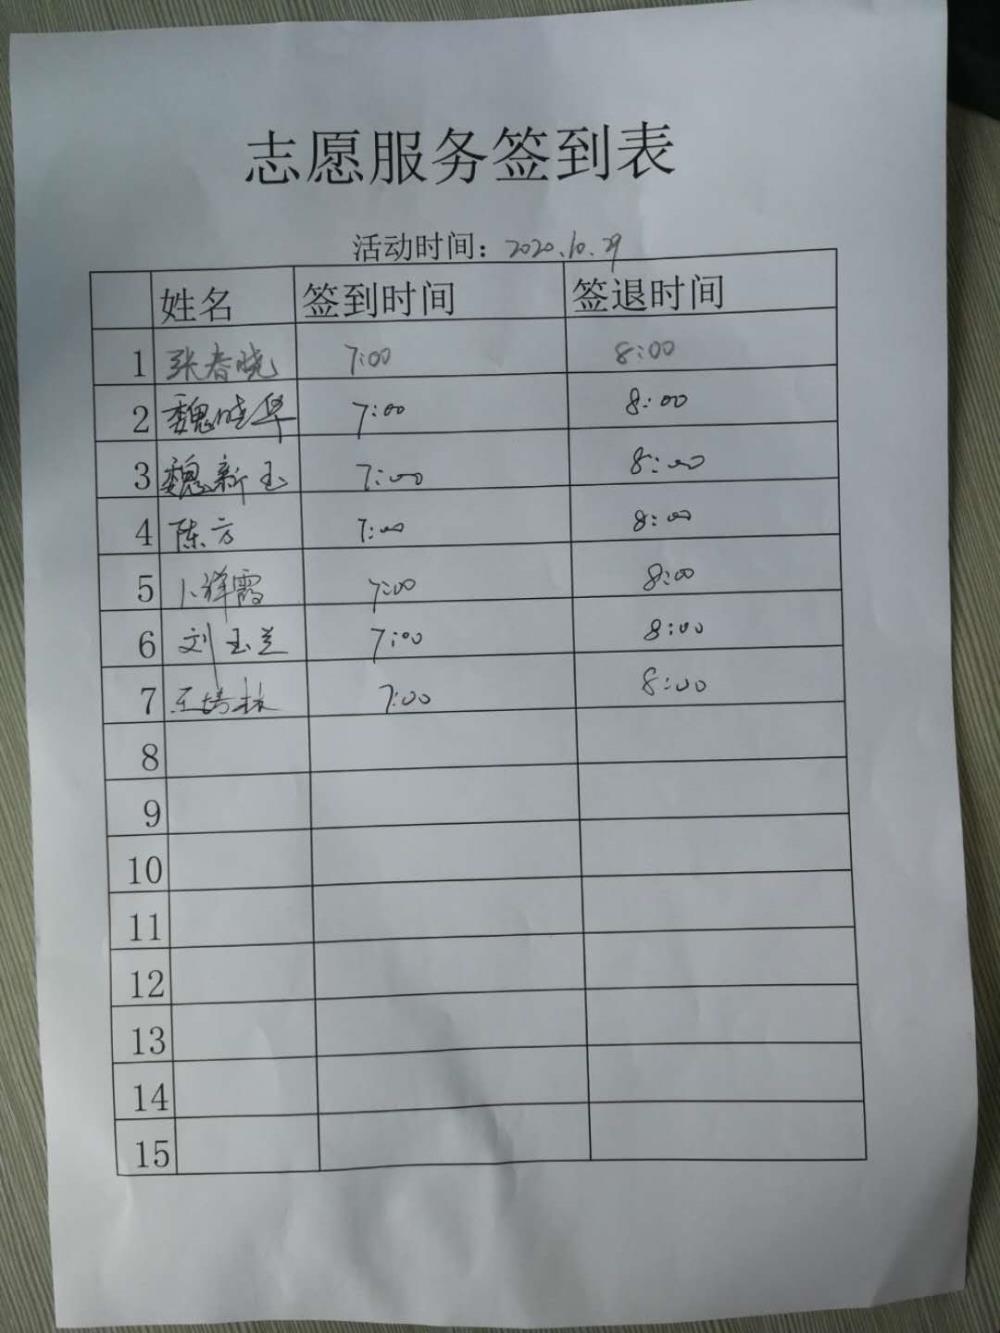 志愿服务签到表
活动时间：2020.10.29
姓名 签到时间 签退时间
1 张春晓 7:00 8:00
2 魏晓华 7:00 8:00
3 魏新玉 7:00 8:00
4 陈方 7:00 8:00
5 卜祥霞 7:00 8:00
6 刘玉兰 7:00 8:00
7 王培林 7:00 8:00
8
9
10
11
12
13
14
15